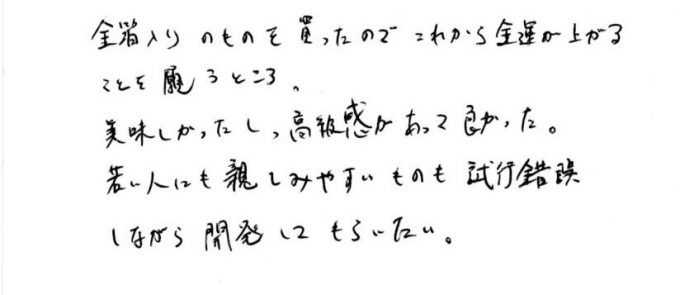 金箔入りのものを買ったのでこれから金運が上がる
ことを願うところ。
美味しかったし、高級感があって良かった。
若い人にも親しみやすいものも試行錯誤
しながら開発してもらいたい。